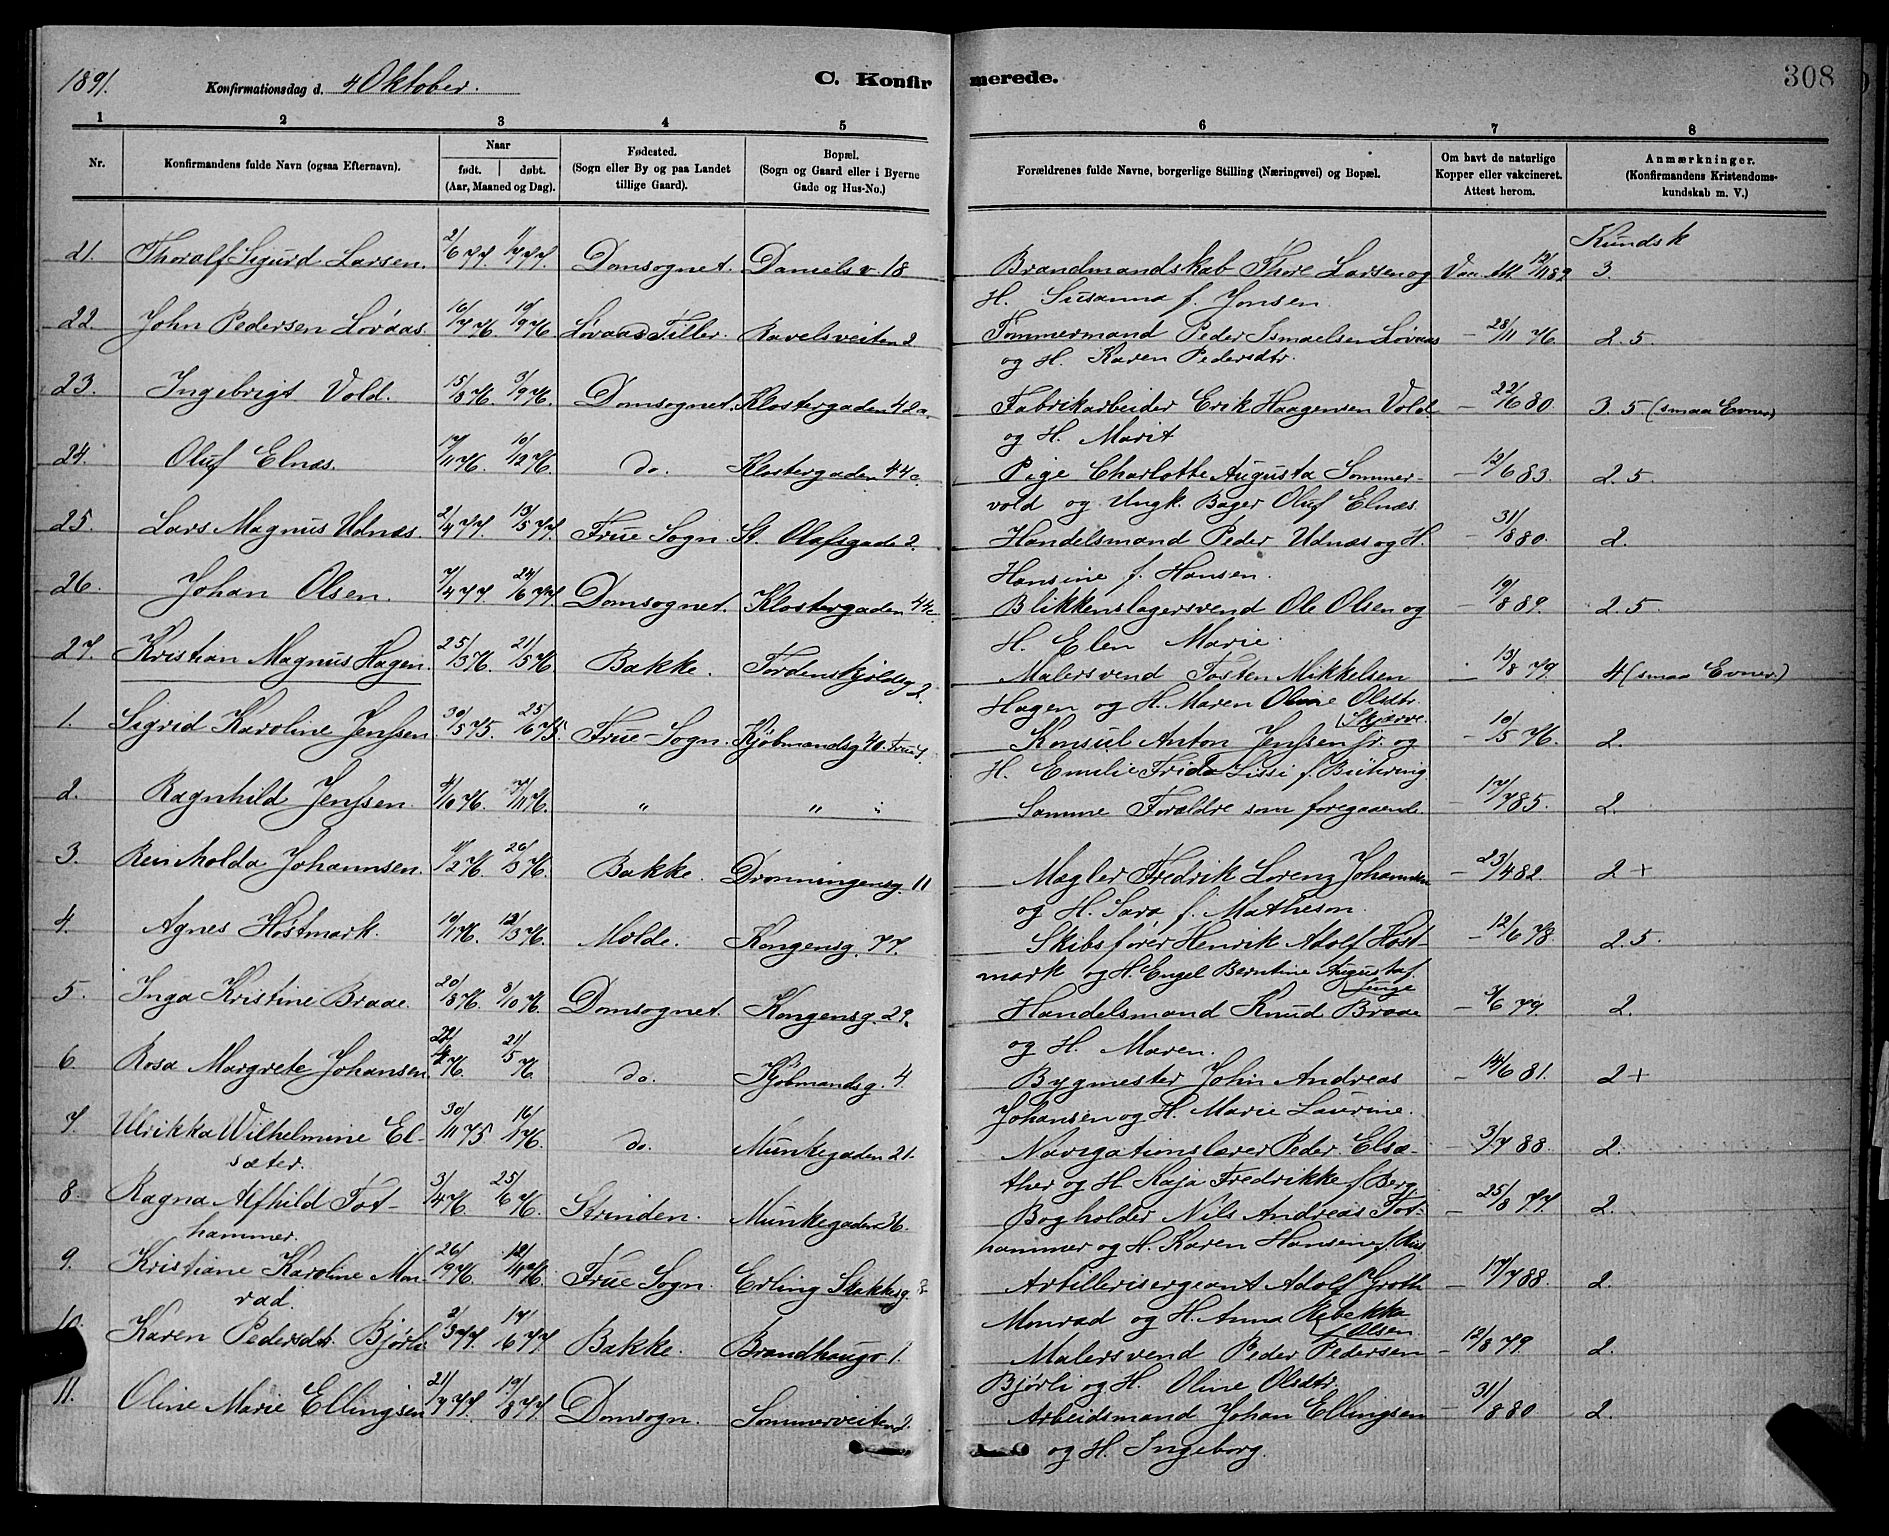 1891.
Konfirmationsdag d. 4 Oktober.
C. Konfir
merede.
308
1 2 3 4 5 6 7 8
Nr.
Konfirmandens fulde Navn (ogsaa Efternavn).
Naar
født. døbt.
(Aar, Maaned og Dag).
Fødested.
(Sogn eller By og paa Landet
tillige Gaard).
Bopæl.
(Sogn og Gaard eller i Byerne
Gade og Hus-No.)
Forældrenes fulde Navne, borgerlige Stilling (Næringsvei) og Bopæl.
Om havt de naturlige
Kopper eller vakcineret.
Attest herom.
Anmærkninger.
(Konfirmandens Kristendoms-
kundskab m. V.)
Kundsk
21. Thoralf Sigurd Larsen. 2/6 77. 1/7 77. Domsognet. Daniels v. 18 Brandmandskab Thore Larsen og Vac. Att 12/11 89. 3.
H. Susanna f. Jonsen.
22. John Pedersen Lovaas. 16/7 76. 10/9 76. Lovaas Tiller. Ravelsveiten 2 Tommermand Peder Ismaelsen Løvaas - 28/11 76. 2.5.
og H. Karen Pedersdtr.
23. Ingebrigt Vold. 15/8 76. 3/9 76. Domsognet. Klostergaden 42a. Fabrikarbeider Erik Haagensen Vold - 22/6 80 3.5 (smaa Evner)
og H. Marit
24. Oluf Elnæs. 17/11 76. 10/12 76. do. Klostergaden 44c. Pige Charlotte Augusta Sommer- - 12/6 83. 2.5.
vold og Ungk. Bager Oluf Elnæs.
25. Lars Magnus Udnæs. 2/4 77. 13/5 77. Frue Sogn. St. Olafsgade 2. Handelsmand Peder Udnæs og H. - 31/8 80. 2.
Hansine f. Hansen.
26. Johan Olsen. 7/4 77. 24/6 77. Domsognet. Klostergaden 44c. Blikkenslagersvend Ole Olsen og - 19/8 89. 2.5.
H. Elen Marie.
27. Kristian Magnus Hagen. 25/3 76. 21/5 76 Bakke. Tordenskjoldsg 2. Malersvend Tosten Mikkelsen - 13/8 79. 4 (smaa Evner.)
Hagen og H. Maren Oline Olsdtr.
Skjærve.
1. Sigrid Karoline Jenssen 30/5 75. 25/6 75. Frue-Sogn. Kjøbmandsg 40. Frue S. Konsul Anton Jenssen jr. og - 10/5 76. 2.
H. Emilie Frida Lissi f. Bühring.
2. Ragnhild Jenssen. 8/10 76. 7/11 76. " " " Samme Forældre som foregaaende. - 17/7 85. 2.
3. Rein Molda Johannsen. 11/2 76. 26/3 76. Bakke. Dronningensg. 11 Magler Fredrik Lorenz Johannsen - 23/4 82. 2+
og H. Sara f. Matheson.
4. Agnes Høstmark. 19/1 76. 12/3 76. Molde. Kongensg. 77. Skibsfører Henrik Adolf Høst- - 12/6 78. 2.5.
mark og H. Engel Berntine Augusta f.
Junge
5. Inga Kristine Braae. 20/8 76. 8/10 76. Domsognet. Kongensg. 29. Handelsmand Knud Braae - 4/6 79. 2.
og H. Maren.
6. Rosa Margrete Johansen. 22/2 76. 21/5 76 do. Kjøbmandsg. 4. Bygmester John Andreas - 14/6 81. 2+
Johansen og H. Marie Laurine.
7. Ulrikka Wilhelmine El- 30/11 75 16/1 76. do. Munkegaden 21. Navigationslærer Peder Elsæ- - 3/7 88. 2.
sæter.
ther og H. Kaja Fredrikke f. Berg.
8. Ragna Alfhild Tot- 3/4 76. 25/6 76. Strinden. Munkegaden 36. Bogholder Nils Andreas Tot- - 25/8 77 2.
hammer.
hammer og H. Karen Hansine f.
9. Kristiane Karoline Mon- 26/9 76. 12/11 76. Frue Sogn. Erling Skakkesg. Artillerisergeant Adolf Groth - 17/7 88. 2.
rad.
Monrad og H. Anna Rebekka
f. Olsen.
10. Karen Pedersdtr Bjørli 2/3 77. 17/6 77 Bakke. Brandhaugv 1. Malersvend Peder Pedersen - 12/8 79. 2.
Bjørli og H. Oline Olsdtr.
11. Oline Marie Ellingsen 21/7 77. 19/8 77. Domsogn. Sommerveiten 2. Arbeidsmand Johan Ellingsen - 31/8 80 2.
og H. Ingeborg.